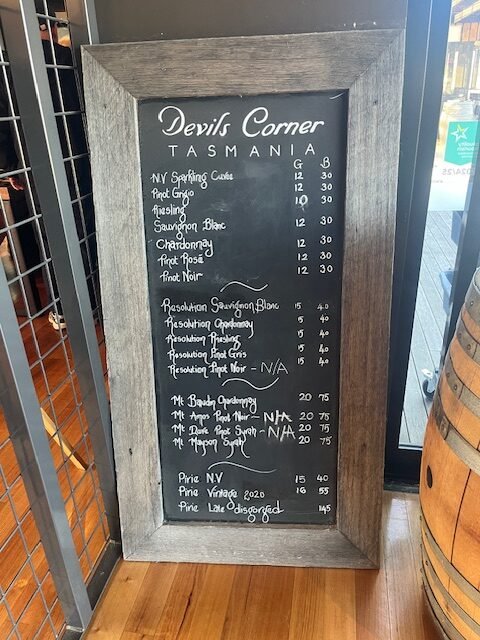 Devil's Corner
TASMANIA
G B
N.V Sparkling Cuvée 12 30
Pinot Grigio 12 30
Riesling 10 30
Sauvignon Blanc 12 30
Chardonnay 12 30
Pinot Rosé 12 30
Pinot Noir 12 30
Resolution Sauvignon Blanc 15 40
Resolution Chardonnay 15 40
Resolution Riesling 15 40
Resolution Pinot Gris 15 40
Resolution Pinot Noir - N/A 15 40
Mt Baudin Chardonnay 20 75
Mt Amos Pinot Noir - N/A 20 75
Mt Dove Pinot Syrah - N/A 20 75
Mt Mayson Syrah 20 75
Pirie N.V 15 40
Pirie Vintage 2020 18 55
Pirie Late disgorged 145
2024/25